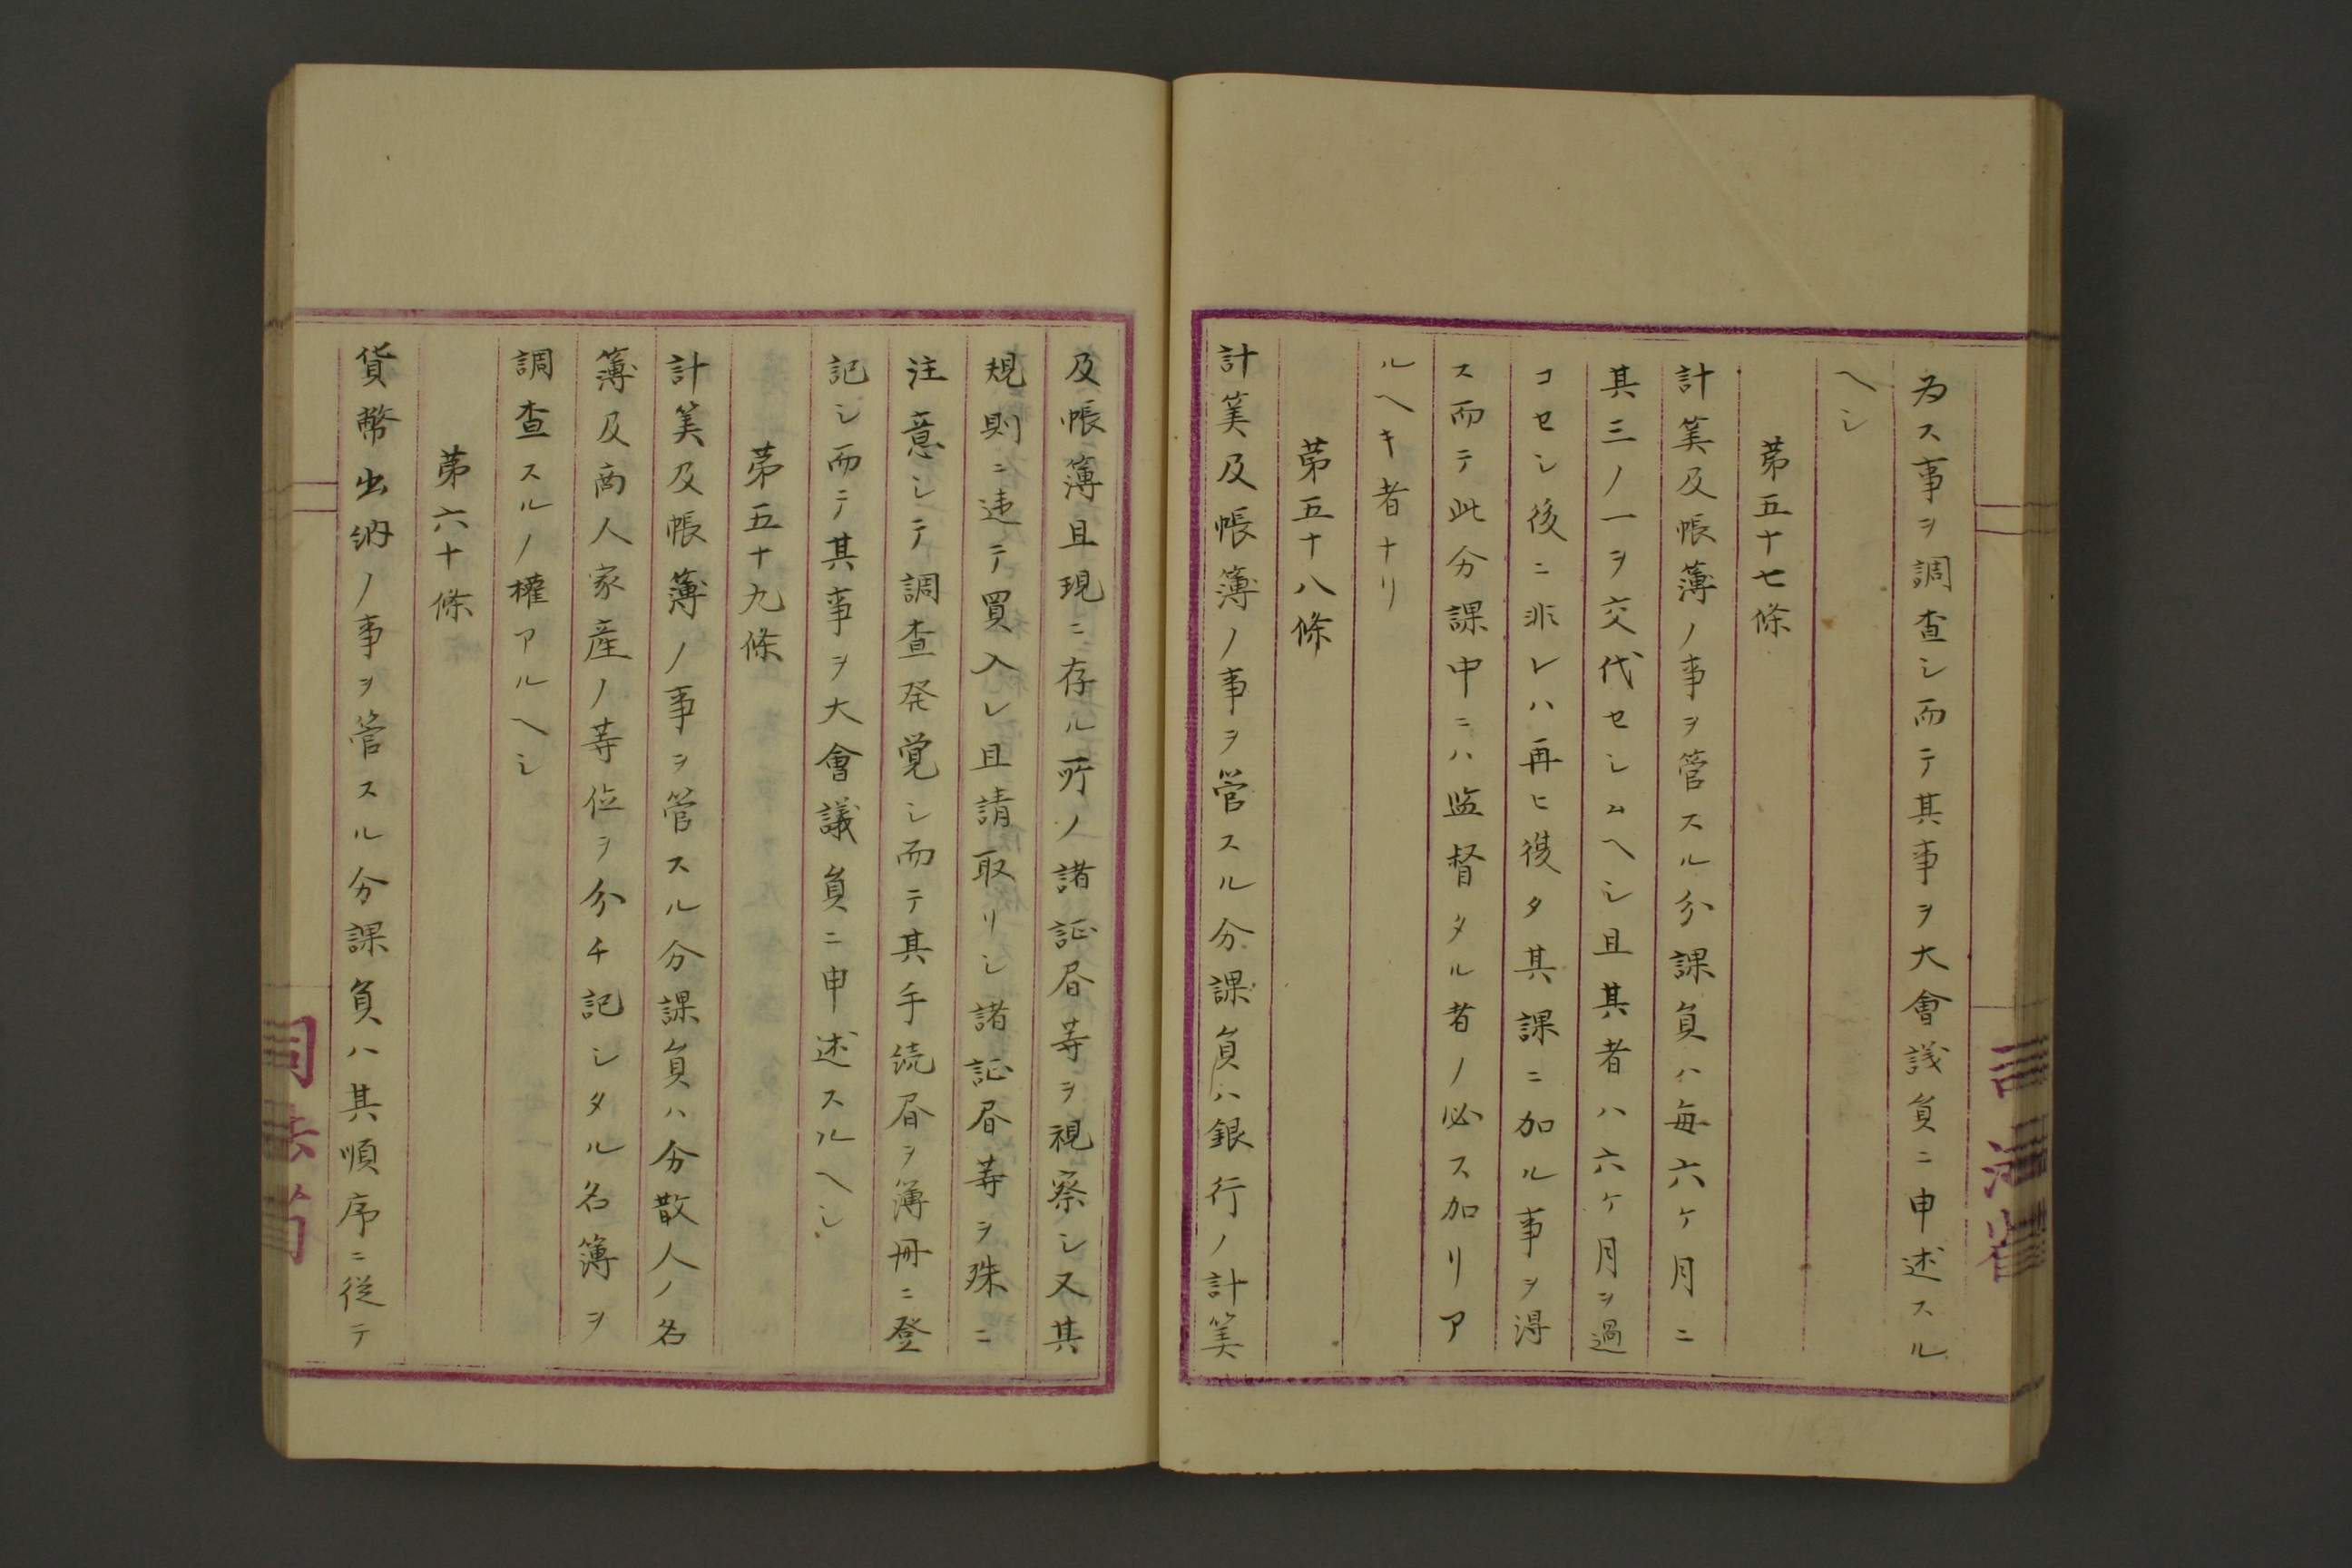 為ス事ヲ調査シ而テ其事ヲ大會議負ニ申述スル
ヘシ
苐五十七條
計筭及帳簿ノ事ヲ管スル分課負ハ毎六ケ月ニ
其三ノ一ヲ交代セシムヘシ且其者ハ六ケ月ヲ過
コセシ後ニ非レハ再ヒ復タ其課ニ加ル事ヲ得
ス而テ此分課中ニハ監督タル者ノ必ス加リア
ルヘキ者ナリ
苐五十八條
計筭及帳簿ノ事ヲ管スル分課負ハ銀行ノ計筭
及帳簿且現ニ存ル所ノ諸証昏等ヲ視察シ又其
規則ニ違テ買入レ且請取リシ諸証昏等ヲ殊ニ
注意シテ調査発覚シ而テ其手続昏ヲ簿冊ニ登
記シ而テ其事ヲ大會議負ニ申述スルヘシ
苐五十九條
計筭及帳簿ノ事ヲ管スル分課負ハ分散人ノ名
簿及商人家産ノ等位ヲ分チ記シタル名簿ヲ
調査スルノ權アルヘシ
苐六十條
貨幣出納ノ事ヲ管スル分課負ハ其順序ニ従テ
司法省